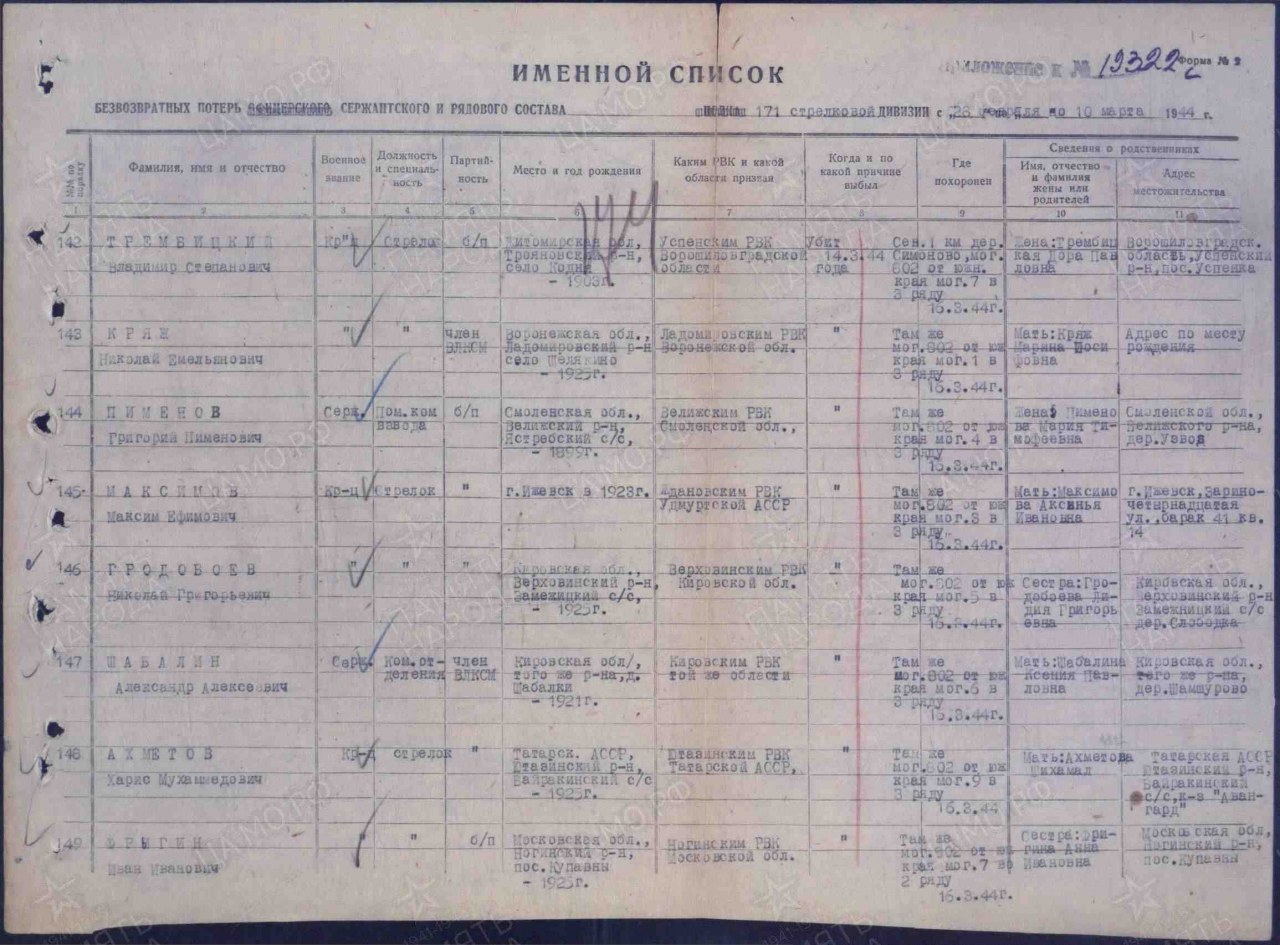 ИМЕННОЙ СПИСОК
Приложение к № 19322с
Форма № 2
БЕЗВОЗВРАТНЫХ ПОТЕРЬ ОФИЦЕРСКОГО, СЕРЖАНТСКОГО И РЯДОВОГО СОСТАВА 171 стрелковой ДИВИЗИИ с "28 февраля по 10 марта 1944 г.
№№ по порядку
Фамилия, имя и отчество
Военное звание
Должность и специаль- ность
Партий- ность
Место и год рождения
Каким РВК и какой области призван
Когда и по какой причине выбыл
Где похоронен
Сведения о родственниках
Имя, отчество и фамилия жены или родителей
Адрес местожительства
1 2 3 4 5 6 7 8 9 10 11
174
142 ТРЕМБИЦКИЙ Кр-ц Стрелок б/п Житомирская обл, Успенским РВК Убит Сев.1 км дер. Жена:Трембиц Ворошиловградск.
Трояновский р-н, Ворошиловградской 14.3.44 Симоново,мог. кая Дора Пав область,Успенский
Владимир Степанович село Кодня области года 802 от южн. ловна р-н,пос.Успенка
- 1903г. края мог.7 в
3 ряду
16.3.44г.
143 КРЯЖ " " член Воронежская обл., Ладомировским РВК " Там же Мать:Кряж Адрес по месту
ВЛКСМ Ладомировский р-н Воронежской обл. мог.802 от юж Марина Иоси рождения
Николай Емельянович село Шелякино края мог.1 в фовна
- 1925г. 3 ряду
16.3.44г.
144 ПИМЕНОВ Серж. Пом.ком б/п Смоленская обл., Велижским РВК " Там же Жена: Пимено Смоленской обл.,
взвода Велижский р-н, Смоленской обл., мог.802 от юж ва Мария Ти- Велижского р-на,
Григорий Пименович Ястребский с/с, края мог.4 в мофеевна дер.Узвоз
- 1899г. 3 ряду
16.3.44г.
145 МАКСИМОВ Кр-ц Стрелок " г.Ижевск в 1923г. Ждановским РВК " Там же Мать:Максимо г.Ижевск,Зарино-
Удмуртской АССР мог.802 от юж ва Аксинья четырнадцатая
Максим Ефимович края мог.3 в Ивановна ул.,барак 41 кв.
3 ряду 14
16.3.44г.
146 ГРОДОБОЕВ " " " Кировская обл., Верховинским РВК " Там же
Верховинский р-н, Кировской обл. мог.802 от юж Сестра:Гро- Кировская обл.,
Николай Григорьевич Замежицкий с/с, края мог.5 в добоева Ли- Верховинский р-н
- 1925г. 3 ряду дия Григорь Замежницкий с/с
16.3.44г. евна дер.Слободка
147 ШАБАЛИН Серж. Ком.от- член Кировская обл/, Кировским РВК " Там же Мать:Шабалина Кировская обл.,
деления ВЛКСМ того же р-на,д. той же области мог.802 от юж Ксения Пав- того же р-на,
Александр Алексеевич Шабалки края мог.6 в ловна дер.Шамшурово
- 1921г. 3 ряду
16.3.44г.
148 АХМЕТОВ Кр-ц стрелок " Татарск. АССР, Ютазинским РВК " Там же Мать:Ахметова Татарская АССР
Ютазинский р-н, Татарской АССР, мог.802 от юж Шихамал Ютазинский р-н,
Харис Мухаммедович Байракинский с/с края мог.9 в Байракинский
- 1925г. 3 ряду с/с,к-з "Аван-
16.3.44 гард"
149 ФРЫГИН " " б/п Московская обл., Ногинским РВК " Там же Сестра:Фри- Московская обл,
Ногинский р-н, Московской обл. мог.802 от юж гина Анна Ногинский р-н,
Иван Иванович пос.Купавны края мог.7 во Ивановна пос.Купавны
- 1925г. 2 ряду
16.3.44г.